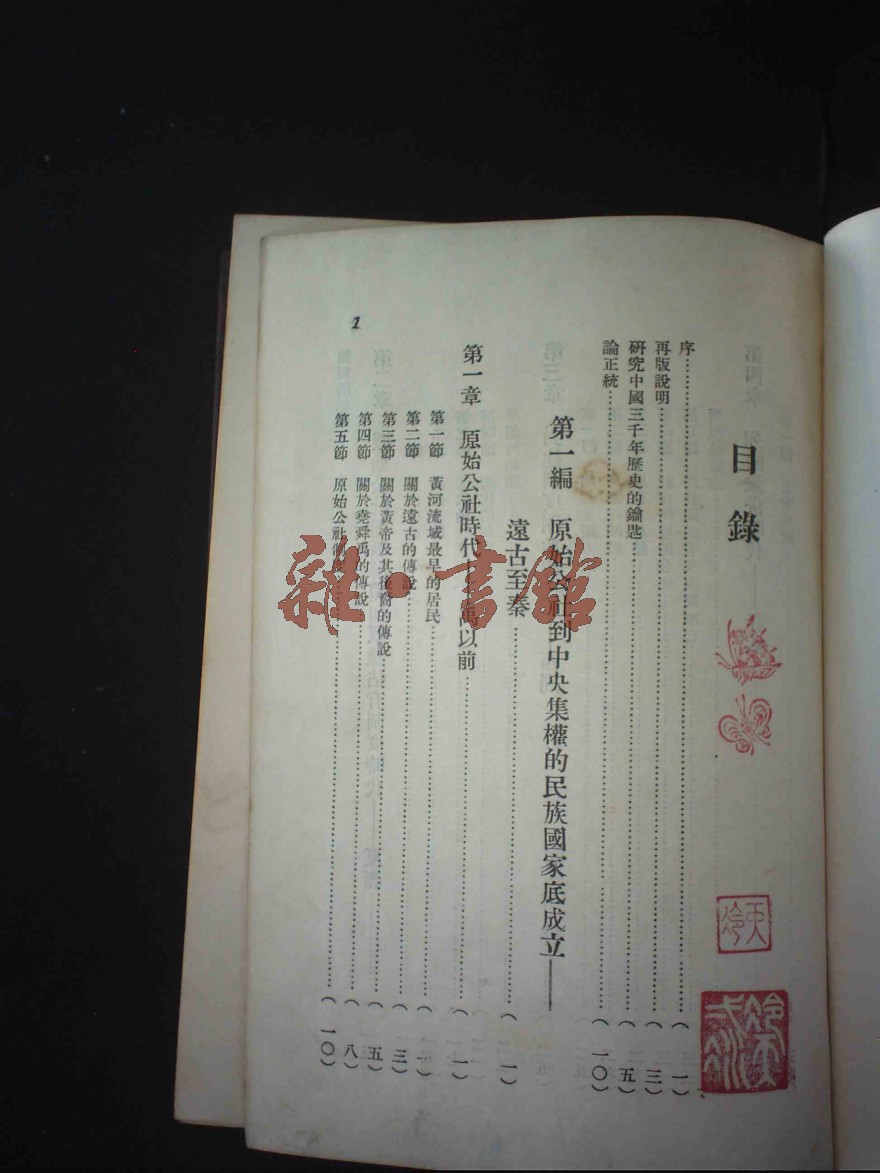 目錄
序……(一)
再版說明……(三)
研究中國三千年歷史的鑰匙……(五)
論正統……(一〇)
第一編 原始公社到中央集權的民族國家底成立——
遠古至秦……(一)
第一章 原始公社時代——禹以前……(一)
第一節 黃河流域最早的居民……(一)
第二節 關於遠古的傳說……(三)
第三節 關於黃帝及其後裔的傳說……(五)
第四節 關於堯舜禹的傳說……(八)
第五節 原始公社制度……(一〇)
1
雜·書館